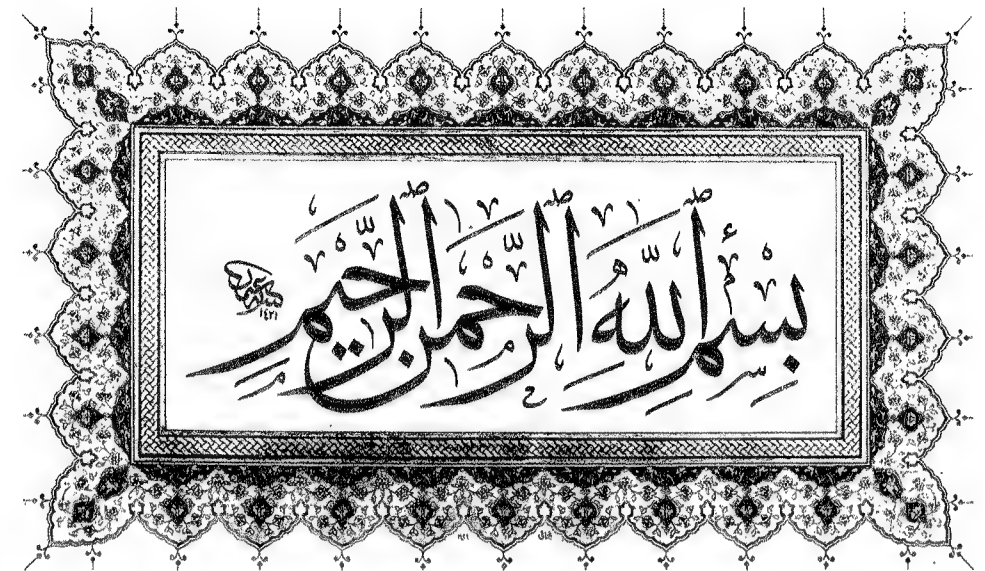 بِسْمِ اللَّهِ الرَّحْمَٰنِ الرَّحِيمِ
١٤٢١